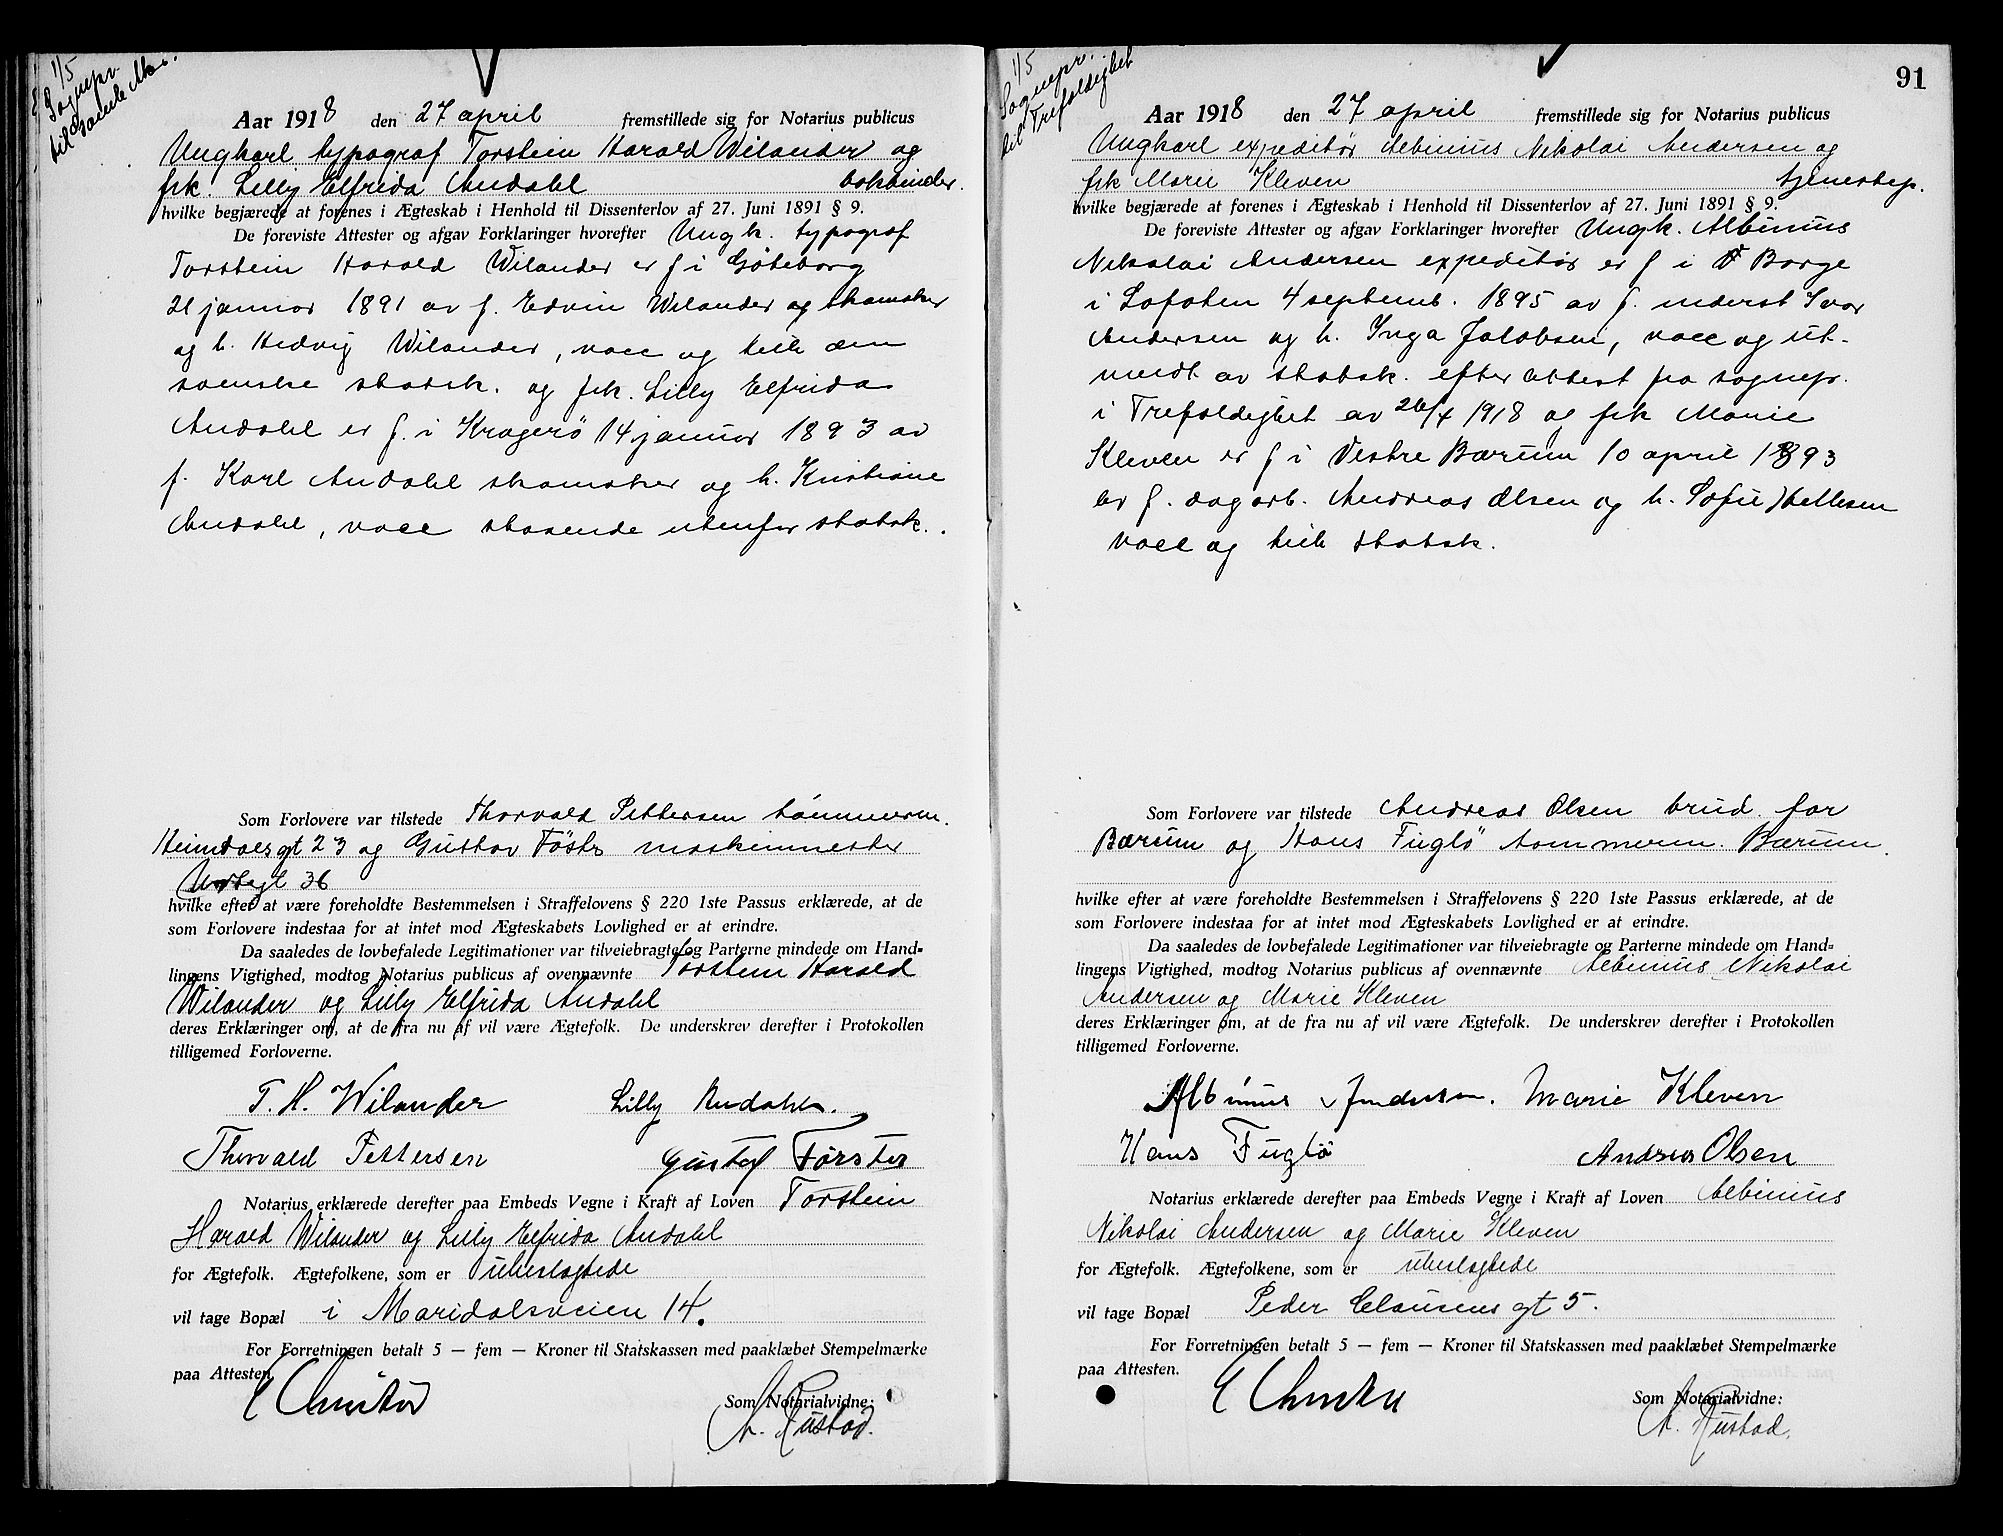 1/5
Sognepr.
til Gamle Aker.
Aar 1918 den 27 april fremstillede sig for Notarius publicus
Ungkarl typograf Torstein Harald Wilander og
frk. Lilly Elfrida Andahl bokbinder.
hvilke begjærede at forenes i Ægteskab i Henhold til Dissenterlov af 27. Juni 1891 § 9.
De foreviste Attester og afgav Forklaringer hvorefter Ungk. typograf
Torstein Harald Wilander er f i Göteborg
21 januar 1891 av f. Edvin Wilander og skomaker
og h. Hedvig Wilander, vacc og tilh den
svenske statsk. og frk. Lilly Elfrida
Andahl er f. i Kragerö 14 januar 1893 av
f. Karl Andahl skomaker og h. Kristiane
Andahl, vacc staaende utenfor statsk.
Som Forlovere var tilstede Thorvald Pettersen tömmerm.
Heimdalsgt 23 og Gustav Föster maskinmester
Urtegt 36
hvilke efter at være foreholdte Bestemmelsen i Straffelovens § 220 1ste Passus erklærede, at de
som Forlovere indestaa for at intet mod Ægteskabets Lovlighed er at erindre.
Da saaledes de lovbefalede Legitimationer var tilveiebragte og Parterne mindede om Hand-
lingens Vigtighed, modtog Notarius publicus af ovennævnte Torstein Harald
Wilander og Lilly Elfrida Andahl
deres Erklæringer om, at de fra nu af vil være Ægtefolk. De underskrev derefter i Protokollen
tilligemed Forloverne.
T. H. Wilander Lilly Andahl.
Thorvald Pettersen Gustaf Førster
Notarius erklærede derefter paa Embeds Vegne i Kraft af Loven Torstein
Harald Wilander og Lilly Elfrida Andahl
for Ægtefolk. Ægtefolkene, som er uberlagtede
vil tage Bopæl i Maridalsveien 14.
For Forretningen betalt 5 — fem — Kroner til Statskassen med paaklæbet Stempelmærke
paa Attesten.
Som Notarialvidne:
A. Rustad.
91
1/5
Sognepr.
til Trefoldighet
Aar 1918 den 27 april fremstillede sig for Notarius publicus
Ungkarl expeditör Albinius Nikolai Andersen og
frk Marie Kleven tjenestep.
hvilke begjærede at forenes i Ægteskab i Henhold til Dissenterlov af 27. Juni 1891 § 9.
De foreviste Attester og afgav Forklaringer hvorefter Ungk. Albinius
Nikolai Andersen expeditör er f i Borge
i Lofoten 4 septemb. 1895 av f. inderst Ivar
Andersen og h. Inga Jakobsen, vacc og ut-
meldt av statsk. efter attest fra sognepr.
i Trefoldighet av 26/4 1918 og frk Marie
Kleven er f i Vestre Bærum 10 april 1893
av f. dagarb. Andreas Olsen og h. Sofie Hellesen
vacc og tilh statsk.
Som Forlovere var tilstede Andreas Olsen brud. far
Bærum og Hans Fuglö tommerm. Bærum.
hvilke efter at være foreholdte Bestemmelsen i Straffelovens § 220 1ste Passus erklærede, at de
som Forlovere indestaa for at intet mod Ægteskabets Lovlighed er at erindre.
Da saaledes de lovbefalede Legitimationer var tilveiebragte og Parterne mindede om Hand-
lingens Vigtighed, modtog Notarius publicus af ovennævnte Albinius Nikolai
Andersen og Marie Kleven
deres Erklæringer om, at de fra nu af vil være Ægtefolk. De underskrev derefter i Protokollen
tilligemed Forloverne.
Albinius Andersen. Marie Kleven
Hans Fuglö Andreas Olsen
Notarius erklærede derefter paa Embeds Vegne i Kraft af Loven Albinius
Nikolai Andersen og Marie Kleven
for Ægtefolk. Ægtefolkene, som er uberlagtede
vil tage Bopæl Peder Clausens gt 5.
For Forretningen betalt 5 — fem — Kroner til Statskassen med paaklæbet Stempelmærke
paa Attesten.
Som Notarialvidne:
A. Rustad.